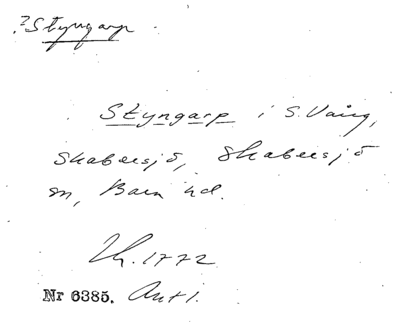 ? Styngarp
Styngarp i S. Vång,
Skabersjö, Skabersjö
sn, Bara hd.
1772
Nr 6385. Ant 1.